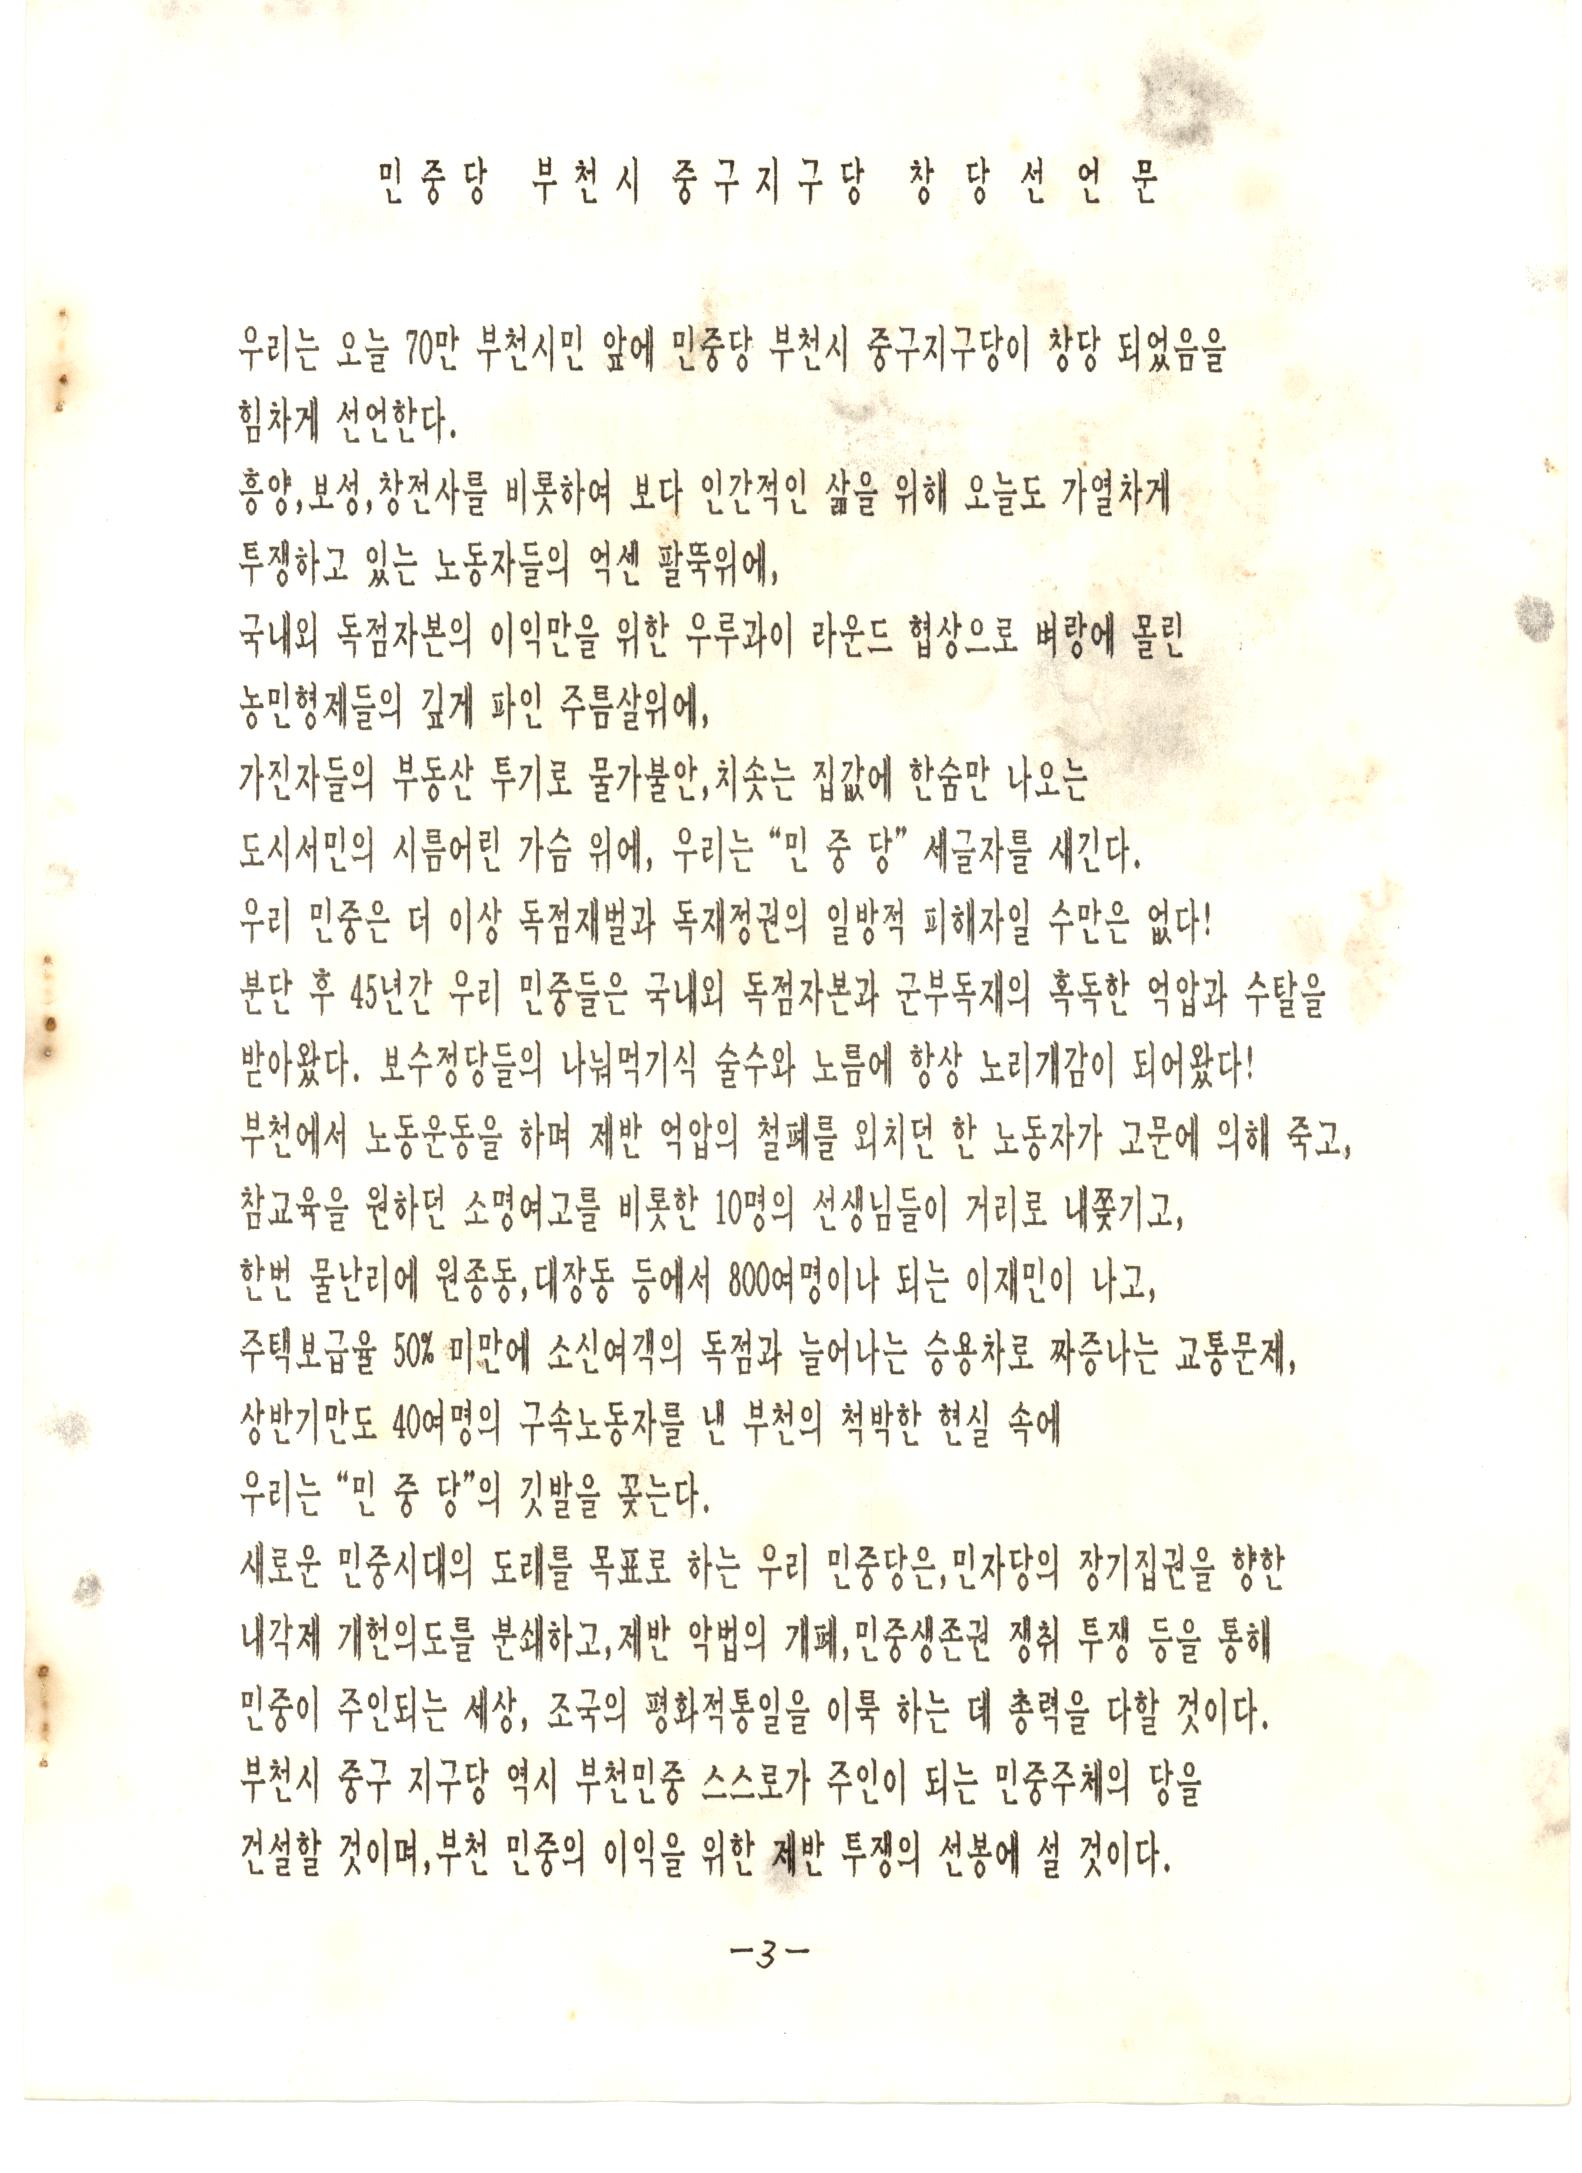 민중당 부천시 중구지구당 창당선언문
우리는 오늘 70만 부천시민 앞에 민중당 부천시 중구지구당이 창당 되었음을
힘차게 선언한다.
흥양,보성,창전사를 비롯하여 보다 인간적인 삶을 위해 오늘도 가열차게
투쟁하고 있는 노동자들의 억센 팔뚝위에,
국내외 독점자본의 이익만을 위한 우루과이 라운드 협상으로 벼랑에 몰린
농민형제들의 깊게 파인 주름살위에,
가진자들의 부동산 투기로 물가불안,치솟는 집값에 한숨만 나오는
도시서민의 시름어린 가슴 위에, 우리는 “민 중 당” 세글자를 새긴다.
우리 민중은 더 이상 독점재벌과 독재정권의 일방적 피해자일 수만은 없다!
분단 후 45년간 우리 민중들은 국내외 독점자본과 군부독재의 혹독한 억압과 수탈을
받아왔다. 보수정당들의 나눠먹기식 술수와 노름에 항상 노리개감이 되어왔다!
부천에서 노동운동을 하며 제반 억압의 철폐를 외치던 한 노동자가 고문에 의해 죽고,
참교육을 원하던 소명여고를 비롯한 10명의 선생님들이 거리로 내쫓기고,
한번 물난리에 원종동,대장동 등에서 800여명이나 되는 이재민이 나고,
주택보급율 50% 미만에 소신여객의 독점과 늘어나는 승용차로 짜증나는 교통문제,
상반기만도 40여명의 구속노동자를 낸 부천의 척박한 현실 속에
우리는 “민 중 당”의 깃발을 꽂는다.
새로운 민중시대의 도래를 목표로 하는 우리 민중당은,민자당의 장기집권을 향한
내각제 개헌의도를 분쇄하고,제반 악법의 개폐,민중생존권 쟁취 투쟁 등을 통해
민중이 주인되는 세상, 조국의 평화적통일을 이룩 하는 데 총력을 다할 것이다.
부천시 중구 지구당 역시 부천민중 스스로가 주인이 되는 민중주체의 당을
건설할 것이며,부천 민중의 이익을 위한 제반 투쟁의 선봉에 설 것이다.
-3-